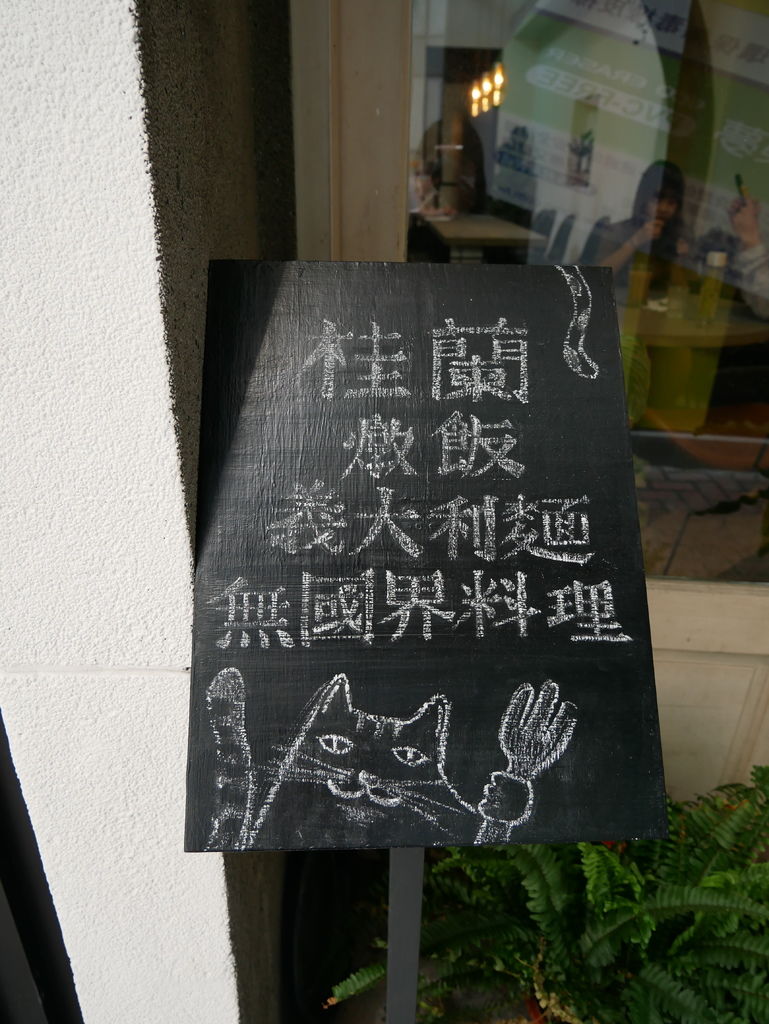 桂蘭
燉飯
義大利麵
無國界料理